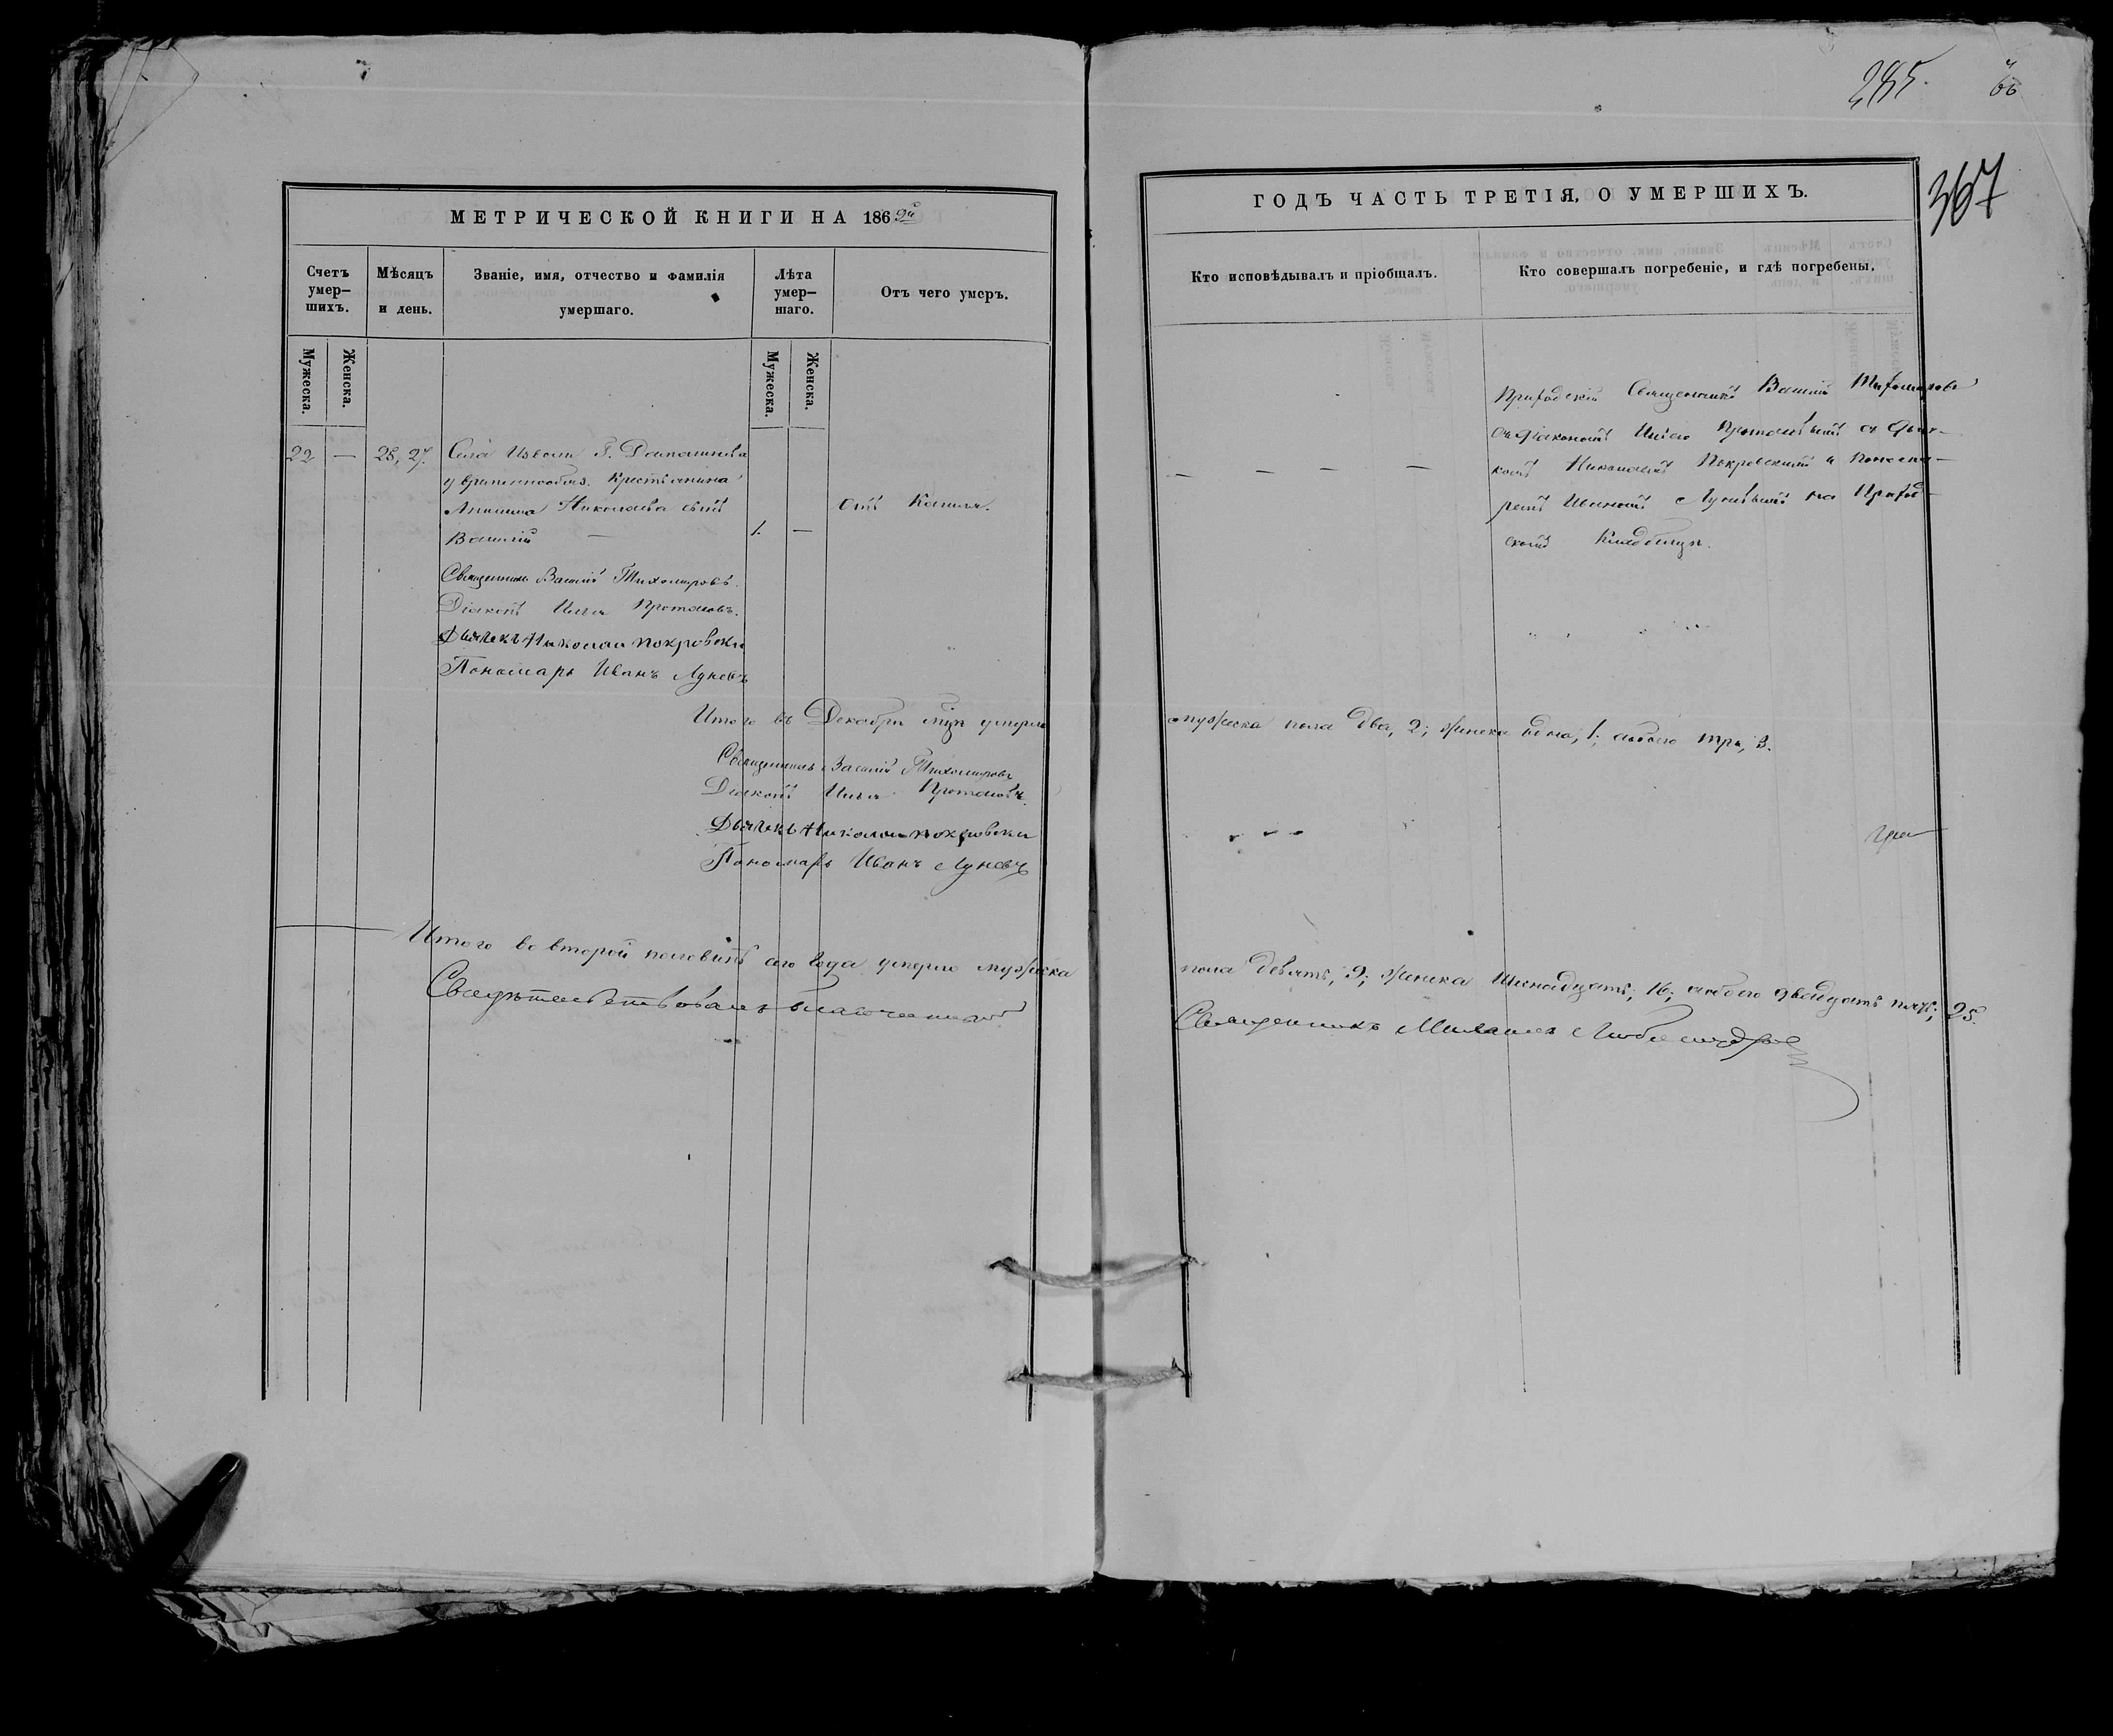 285.
66
367
МЕТРИЧЕСКОЙ КНИГИ НА 1862й
Счетъ умер–шихъ.
Мѣсяцъ и день.
Званіе, имя, отчество и фамилія умершаго.
Лѣта умер–шаго.
Отъ чего умеръ.
Мужеска.
Женска.
Мужеска.
Женска.
22 — 25, 27. Села
Крестьянина
Николаева сынъ
Василій — 1. —
Отъ Кашля.
Священникъ Василій Тихомировъ.
Діаконъ Илья Протасовъ.
Дьячекъ Николай Покровски
Пономарь Иванъ Луневъ
Итого въ Декабрѣ мцѣ умерло
Священникъ Василій Тихомировъ
Діаконъ Илья Протасовъ.
Дьячекъ Николай Покровски
Пономарь Иванъ Луневъ
Итого во второй половинѣ сего года умерло мужеска
Свидѣтельствовалъ благочинный
ГОДЪ ЧАСТЬ ТРЕТІЯ, О УМЕРШИХЪ.
Кто исповѣдывалъ и пріобщалъ.
Кто совершалъ погребеніе, и гдѣ погребены.
— — — —
Приходскій Священникъ Василій Тихомировъ
съ Діакономъ Ильею Протасовымъ съ Дьяч–
комъ Николаемъ Покровскимъ и Понома–
ремъ Иваномъ Луневымъ на Приход–
скомъ Кладбищѣ.
мужеска пола два, 2; женска одна, 1; обоего три, 3.
пола девять, 9; женска шеснадцать, 16; обоего двадцать пять, 25.
Священникъ Михаилъ Любомудровъ